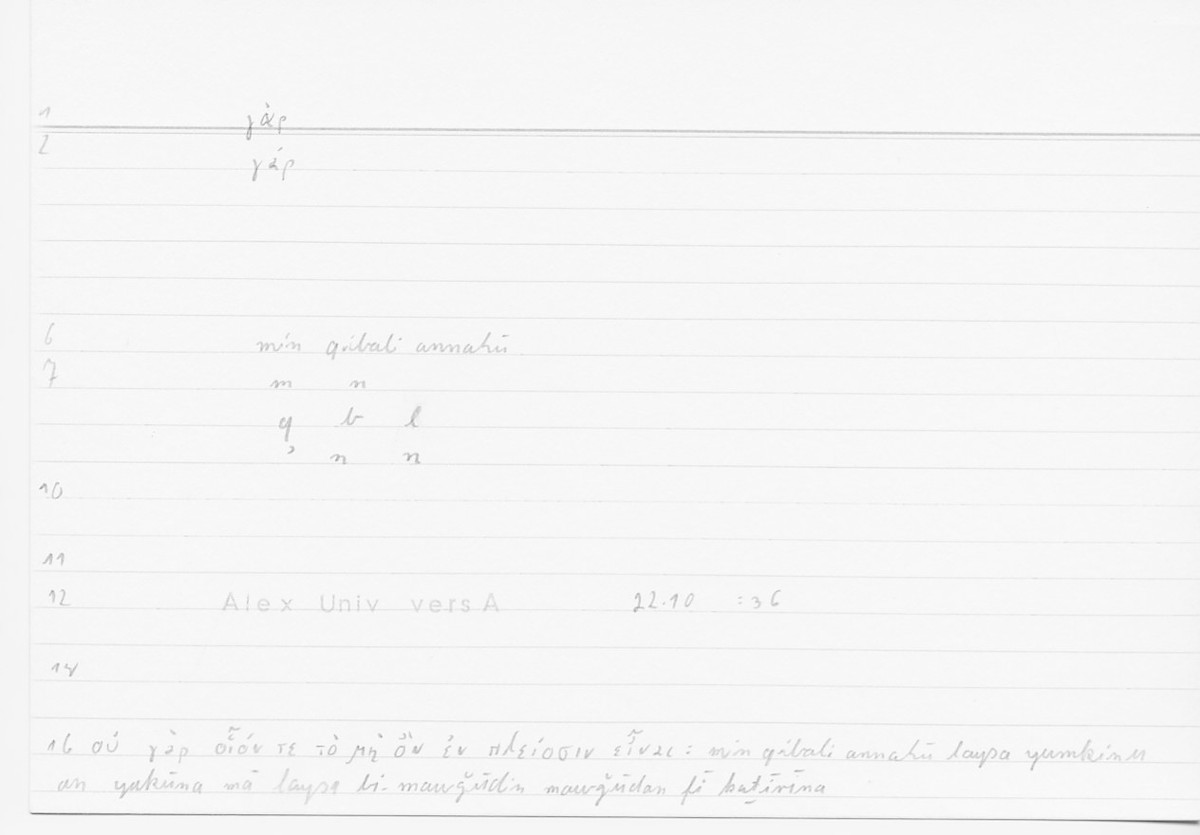 1 γὰρ
2 γάρ
6 min qibali annahū
7 m n
q b l
ʾ n n
10
11
12 Alex Univ vers A 22.10 :36
14
16 οὐ γὰρ οἷόν τε τὸ μὴ ὂν ἐν πλείοσιν εἶναι : min qibali annahū laysa yumkinu
an yakūna mā laysa bi-mawǧūdin mawǧūdan fī kaṯīrīna